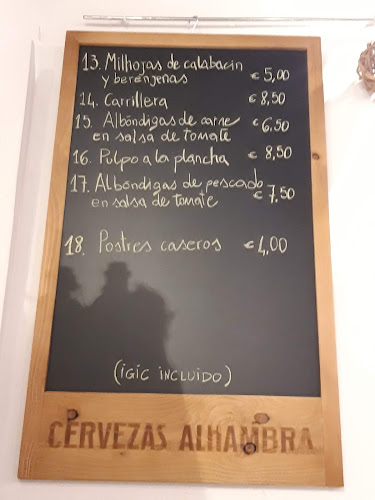 13. Milhojas de calabacin
y berenjenas € 5,00
14. Carrillera € 8,50
15. Albóndigas de carne
en salsa de tomate € 6.50
16. Pulpo a la plancha € 8,50
17. Albóndigas de pescado
en salsa de tomate € 7,50
18. Postres caseros € 4,00
(IGIC INCLUIDO)
CERVEZAS ALHAMBRA